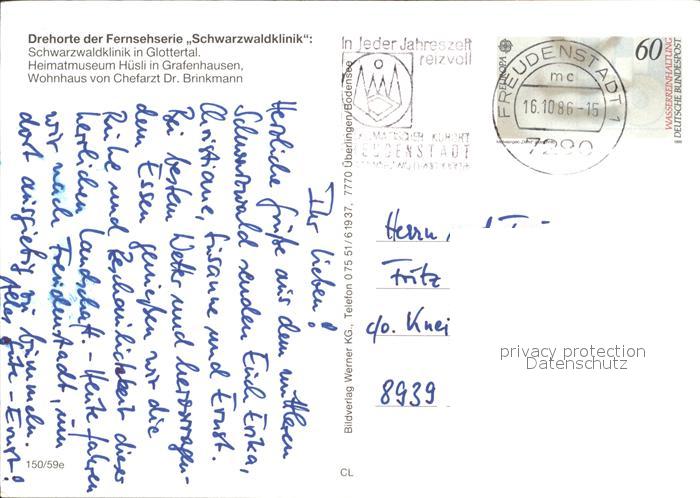 Drehorte der Fernsehserie „Schwarzwaldklinik“:
Schwarzwaldklinik in Glottertal.
Heimatmuseum Hüsli in Grafenhausen,
Wohnhaus von Chefarzt Dr. Brinkmann
Ihr lieben!
Herzliche Grüße aus dem mittleren
Schwarzwald senden Euch Erika,
Christiane, Susanne und Ernst.
Bei besten Wetter und hervorragen-
dem Essen genießen wir die
Ruhe und Beschaulichkeit dieser
herrlichen Landschaft. – Heute fahren
wir nach Freudenstadt, um
dort ausgiebig zu bummeln.
Alles Gute – Ernst!
150/59e
Bildverlag Werner KG., Telefon 0 75 51/6 19 37, 7770 Überlingen/Bodensee
CL
In jeder Jahreszeit
reizvoll
KURORT
FREUDENSTADT
FREUDENSTADT 1
mc
16.10.86-15
7290
EUROPA
60
WASSERREINHALTUNG
DEUTSCHE BUNDESPOST
Herrn
Fritz
c/o. Knei
8939
privacy protection
Datenschutz